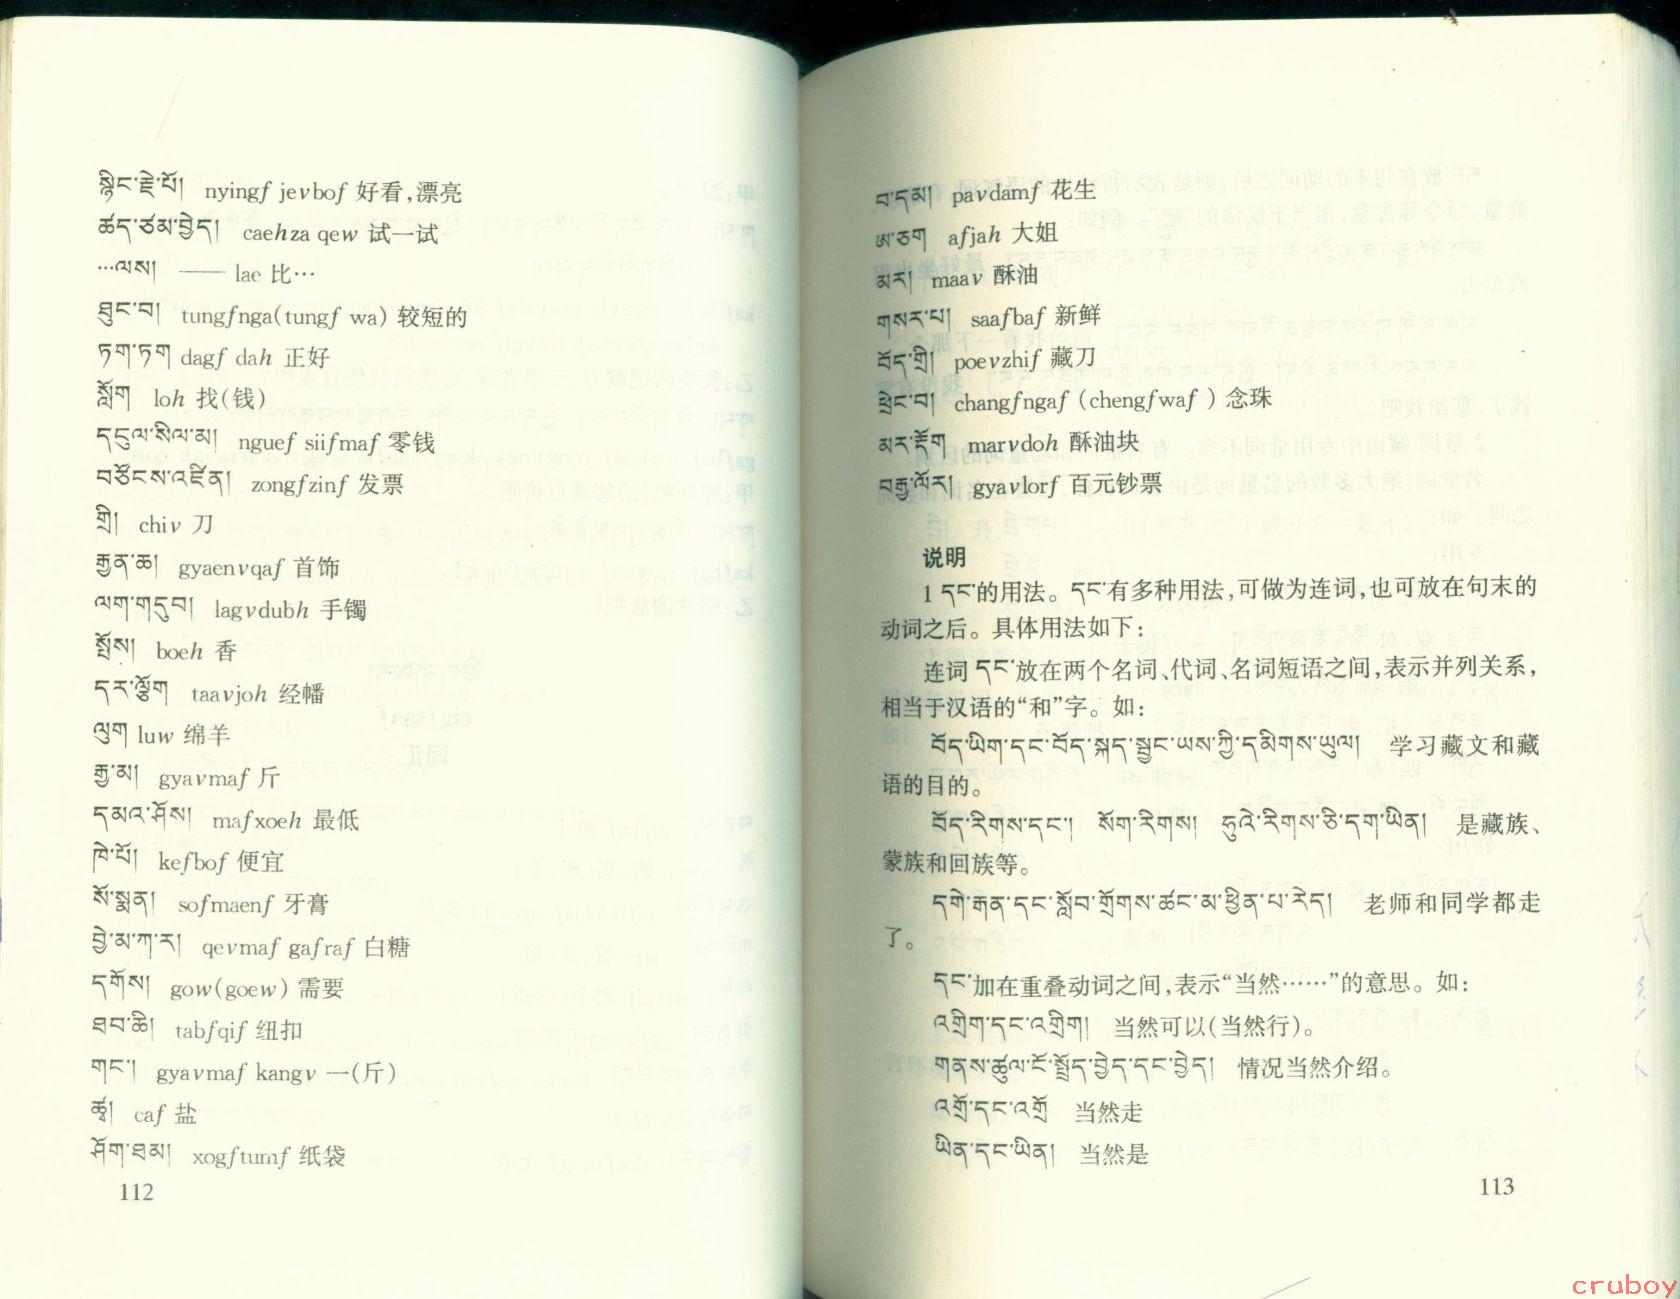 སྙིང་རྗེ་པོ། nyingf jevbof 好看,漂亮
ཚད་ཙམ་བྱེད། caehza qew 试一试
…ལས། —— lae 比…
ཐུང་བ། tungfnga(tungf wa) 较短的
ཏག་ཏག dagf dah 正好
སློག loh 找(钱)
དངུལ་སིལ་མ། nguef siifmaf 零钱
བཙོངས་འཛིན། zongfzinf 发票
གྲི། chiv 刀
རྒྱན་ཆ། gyaenvqaf 首饰
ལག་གདུབ། lagvdubh 手镯
སྤོས། boeh 香
དར་ལྕོག taavjoh 经幡
ལུག luw 绵羊
རྒྱ་མ། gyavmaf 斤
དམའ་ཤོས། mafxoeh 最低
ཁེ་པོ། kefbof 便宜
སོ་སྨན། sofmaenf 牙膏
བྱེ་མ་ཀ་ར། qevmaf gafraf 白糖
དགོས། gow(goew) 需要
ཐབ་ཆི། tabfqif 纽扣
གང་། gyavmaf kangv 一(斤)
ཚྭ། caf 盐
ཤོག་ཐམ། xogftumf 纸袋
112
བ་དམ། pavdamf 花生
ཨ་ཅག afjah 大姐
མར། maav 酥油
གསར་པ། saafbaf 新鲜
བོད་གྲི། poevzhif 藏刀
ཕྲེང་བ། changfngaf (chengfwaf) 念珠
མར་རྡོག marvdoh 酥油块
བརྒྱ་ལོར། gyavlorf 百元钞票
说明
1 དང་的用法。དང་有多种用法,可做为连词,也可放在句末的
动词之后。具体用法如下:
连词 དང་放在两个名词、代词、名词短语之间,表示并列关系,
相当于汉语的“和”字。如:
བོད་ཡིག་དང་བོད་སྐད་སྦྱང་ཡས་ཀྱི་དམིགས་ཡུལ། 学习藏文和藏
语的目的。
བོད་རིགས་དང་། སོག་རིགས། ཧུའེ་རིགས་ཅི་དག་ཡིན། 是藏族、
蒙族和回族等。
དགེ་རྒན་དང་སློབ་གྲོགས་ཚང་མ་ཕྱིན་པ་རེད། 老师和同学都走
了。
དང་加在重叠动词之间,表示“当然……”的意思。如:
འགྲིག་དང་འགྲིག། 当然可以(当然行)。
གནས་ཚུལ་ངོ་སྤྲོད་བྱེད་དང་བྱེད། 情况当然介绍。
འགྲོ་དང་འགྲོ 当然走
ཡིན་དང་ཡིན། 当然是
113
cruboy